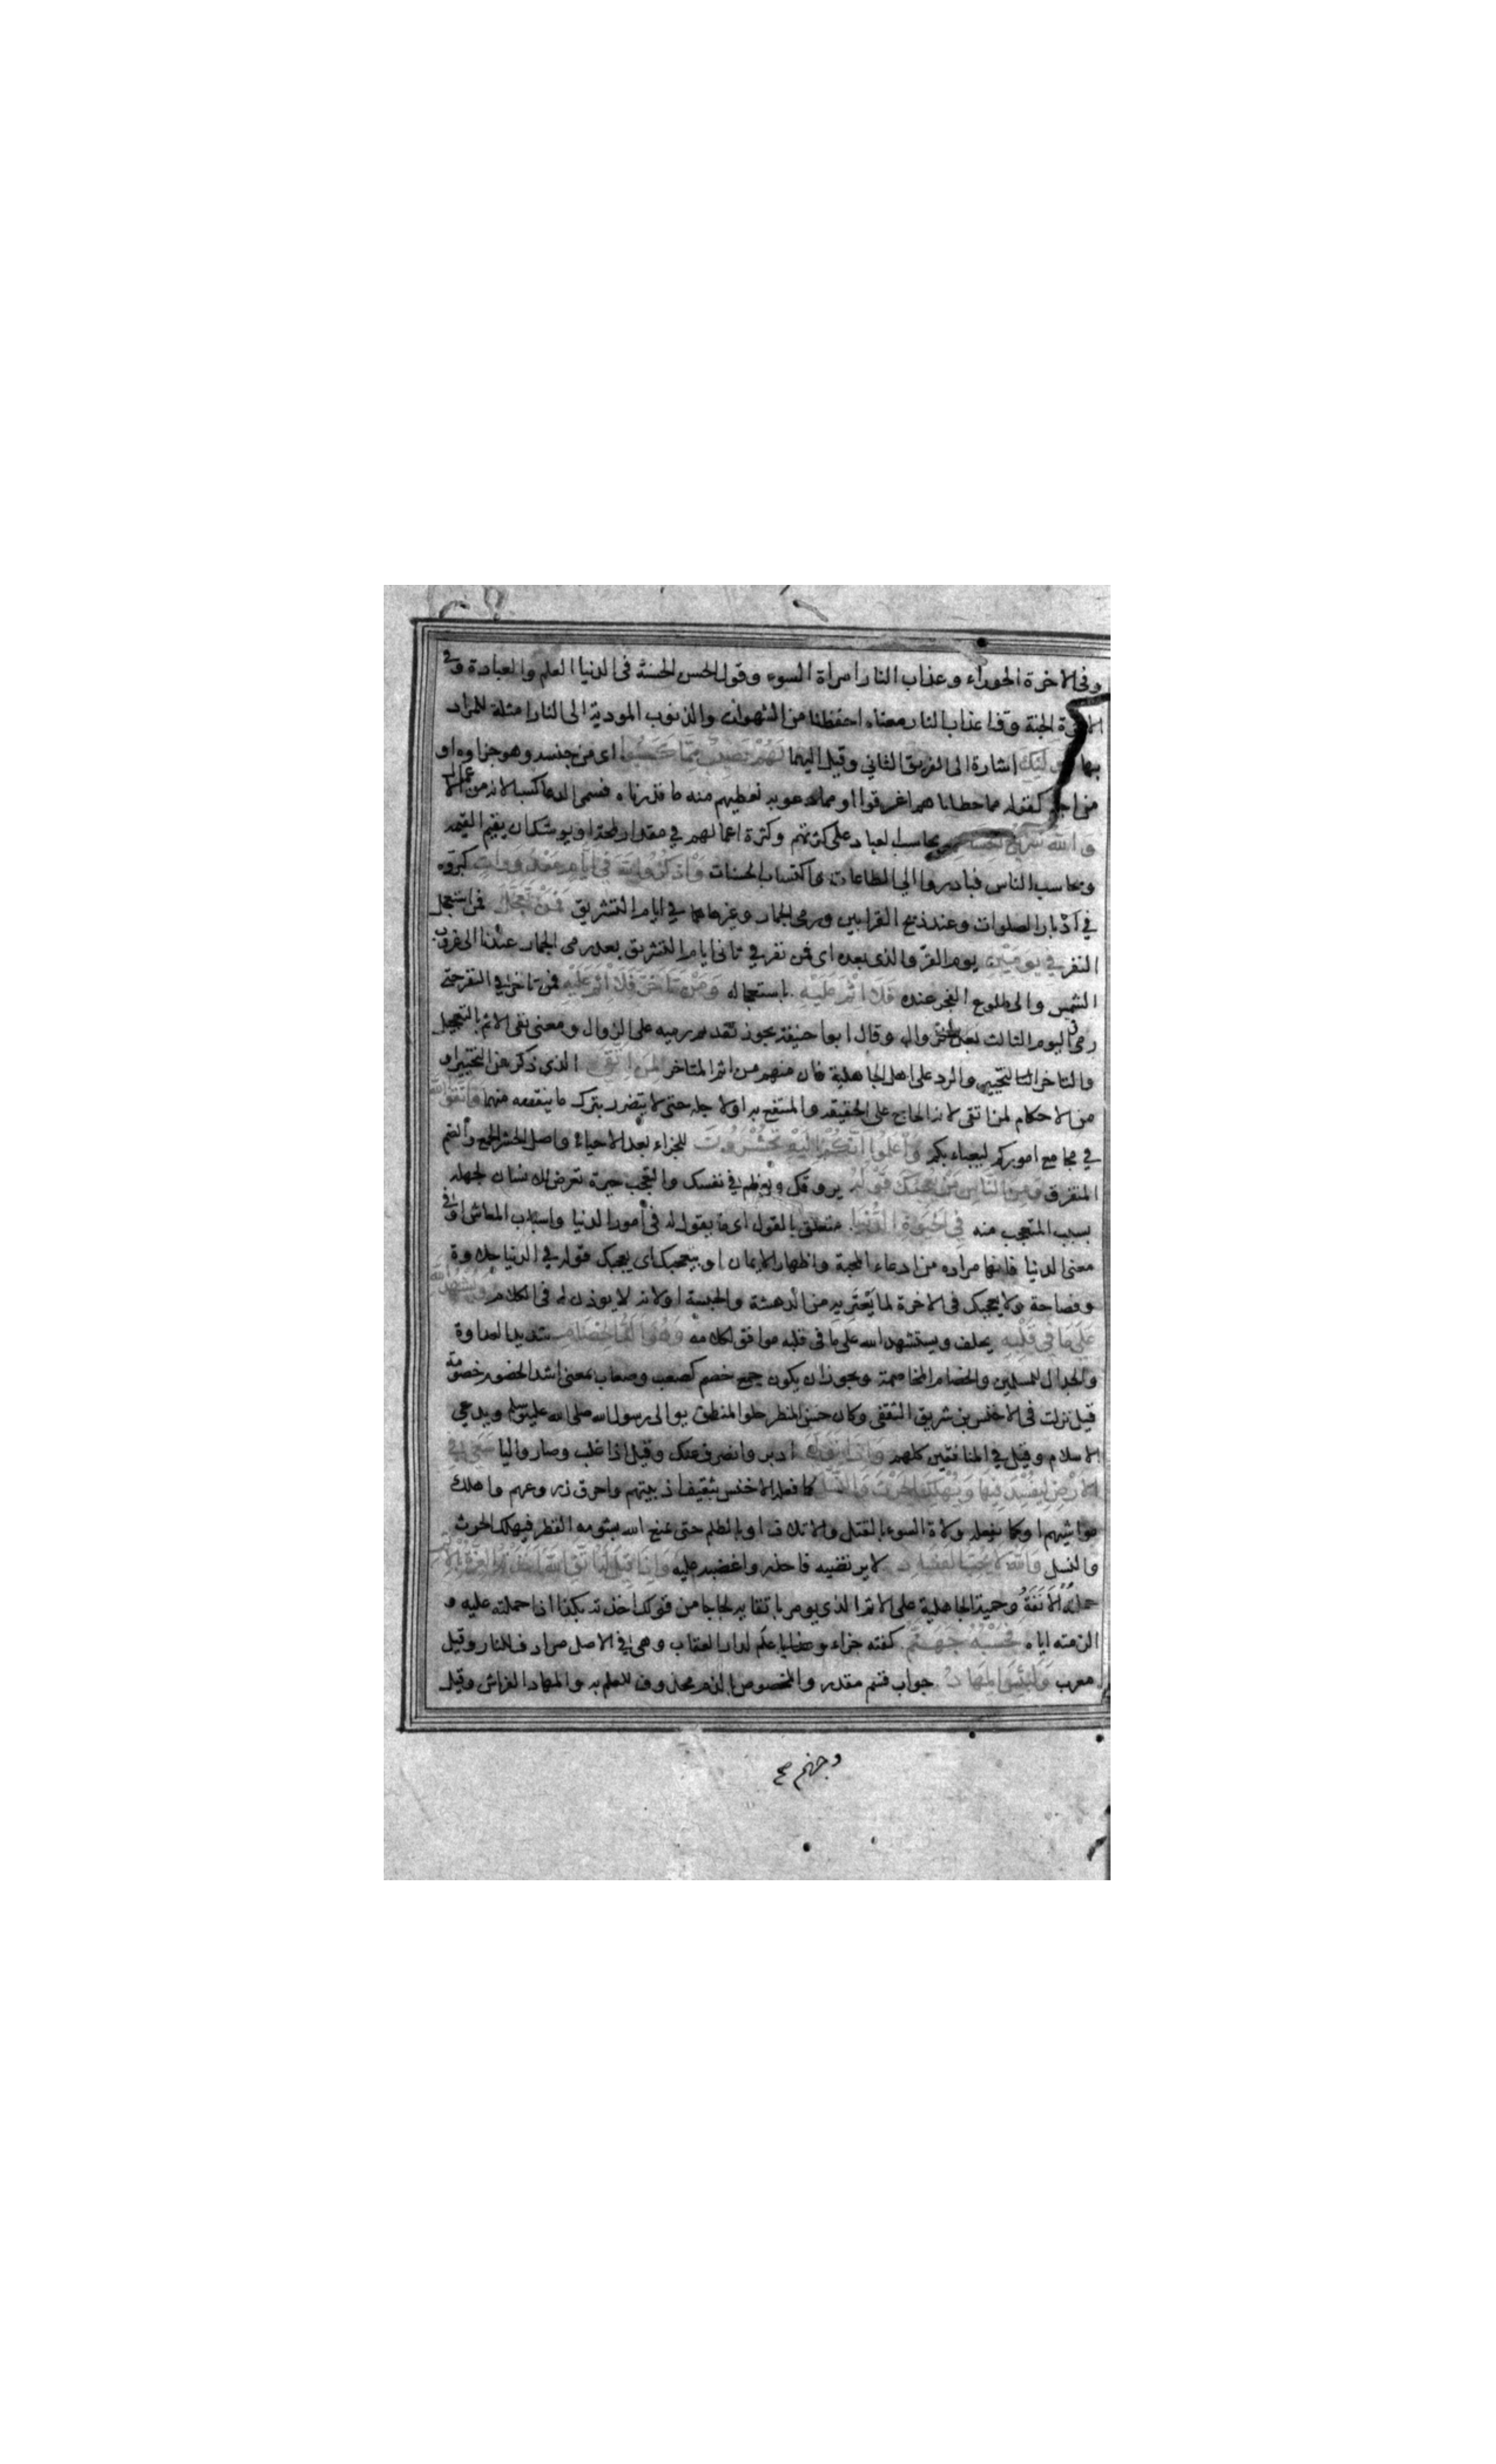 وفى الاخرة الحوراء وعذاب النار امراة السوء وقول الحسن الحسنة فى الدنيا العلم والعبادة وفى
الاخرة الجنة وقنا عذاب النار معناه احفظنا من الشهوات والذنوب المودية الى النار امثلة للمراد
بها اولئك اشارة الى الفريق الثانى وقيل اليهما لهم نصيب مما كسبوا اى من جنسه وهو جزاوه او
من اجله كقوله مما خطاياهم اغرقوا او مما دعوا به نعطيهم منه ما قدرناه فسمى الدعا كسبا لانه من الاعمال
والله سريع الحساب يحاسب العباد على كثرتهم وكثرة اعمالهم فى مقدار لمحة او يوشك ان يقيم القيمة
ويحاسب الناس فبادروا الى الطاعات واكتساب الحسنات واذكروا الله فى ايام معدودات كبروه
فى ادبار الصلوات وعند ذبح القرابين ورمى الجمار وغيرها فى ايام التشريق فمن تعجل فمن استعجل
النفر فى يومين يوم القر والذى بعده اى فمن نفر فى ثانى ايام التشريق بعد رمى الجمار عندنا الى غروب
الشمس والى طلوع الفجر عنده فلا اثم عليه باستعجاله ومن تاخر فلا اثم عليه فمن تاخر فى النفر حتى
رمى فى اليوم الثالث بعد الزوال وقال ابو حنيفة يجوز تقديم رميه على الزوال ومعنى نفى الاثم بالتعجيل
والتاخر التخيير والرد على اهل الجاهلية فان منهم من اثم المتاخر لمن اتقى الذى ذكر من التخيير او
من الاحكام لمن اتقى لانه الحاج على الحقيقة والمنتفع به او لاجله حتى لا يتضرر بترك ما ينفعه منهما واتقوا الله
فى مجامع اموركم ليعباء بكم واعلموا انكم اليه تحشرون للجزاء بعد الاحياء واصل الحشر الجمع والضم
المتفرق ومن الناس من يعجبك قوله يروقك ويعظم فى نفسك والتعجب حيرة تعرض للانسان لجهله
بسبب المتعجب منه فى الحيوة الدنيا متعلق بالقول اى ما يقوله فى امور الدنيا واسباب المعاش او فى
معنى الدنيا فانها مراده من ادعاء المحبة واظهار الايمان او بيعجبك اى يعجبك قوله فى الدنيا حلاوة
وفصاحة ولا يعجبك فى الاخرة لما يعتريه من الدهشة والحبسة او لانه لا يوذن له فى الكلام ويشهد الله
على ما فى قلبه يحلف ويستشهد الله على ما فى قلبه موافق لكلامه وهو الد الخصام شديد العداوة
والجدال للمسلمين والخصام المخاصمة ويجوز ان يكون جمع خصم كصعب وصعاب بمعنى اشد الخصوم خصومة
قيل نزلت فى الاخنس بن شريق الثقفى وكان حسن المنظر حلو المنطق يوالى رسول الله صلى الله عليه وسلم ويدعى
الاسلام وقيل فى المنافقين كلهم واذا تولى ادبر وانصرف عنك وقيل اذا غلب وصار واليا سعى فى
الارض ليفسد فيها ويهلك الحرث والنسل كما فعله الاخنس بثقيف اذ بيتهم واحرق زروعهم واهلك
مواشيهم او كما يفعله ولاة السوء بالقتل والاتلاف او بالظلم حتى يمنع الله بشومه القطر فيهلك الحرث
والنسل والله لا يحب الفساد لا يرتضيه فاحذروا غضبه عليه واذا قيل له اتق الله اخذته العزة بالاثم
حملته الانفة وحمية الجاهلية على الاثم الذى يومر باتقايه لجاجا من قولك اخذته بكذا اذا حملته عليه و
الزمته اياه فحسبه جهنم كفته جزاء وعذابا علم لدار العقاب وهى فى الاصل مرادف للنار وقيل
معرب ولبئس المهاد جواب قسم مقدر والمخصوص بالذم محذوف للعلم به والمهاد الفراش وقيل
وجهنم